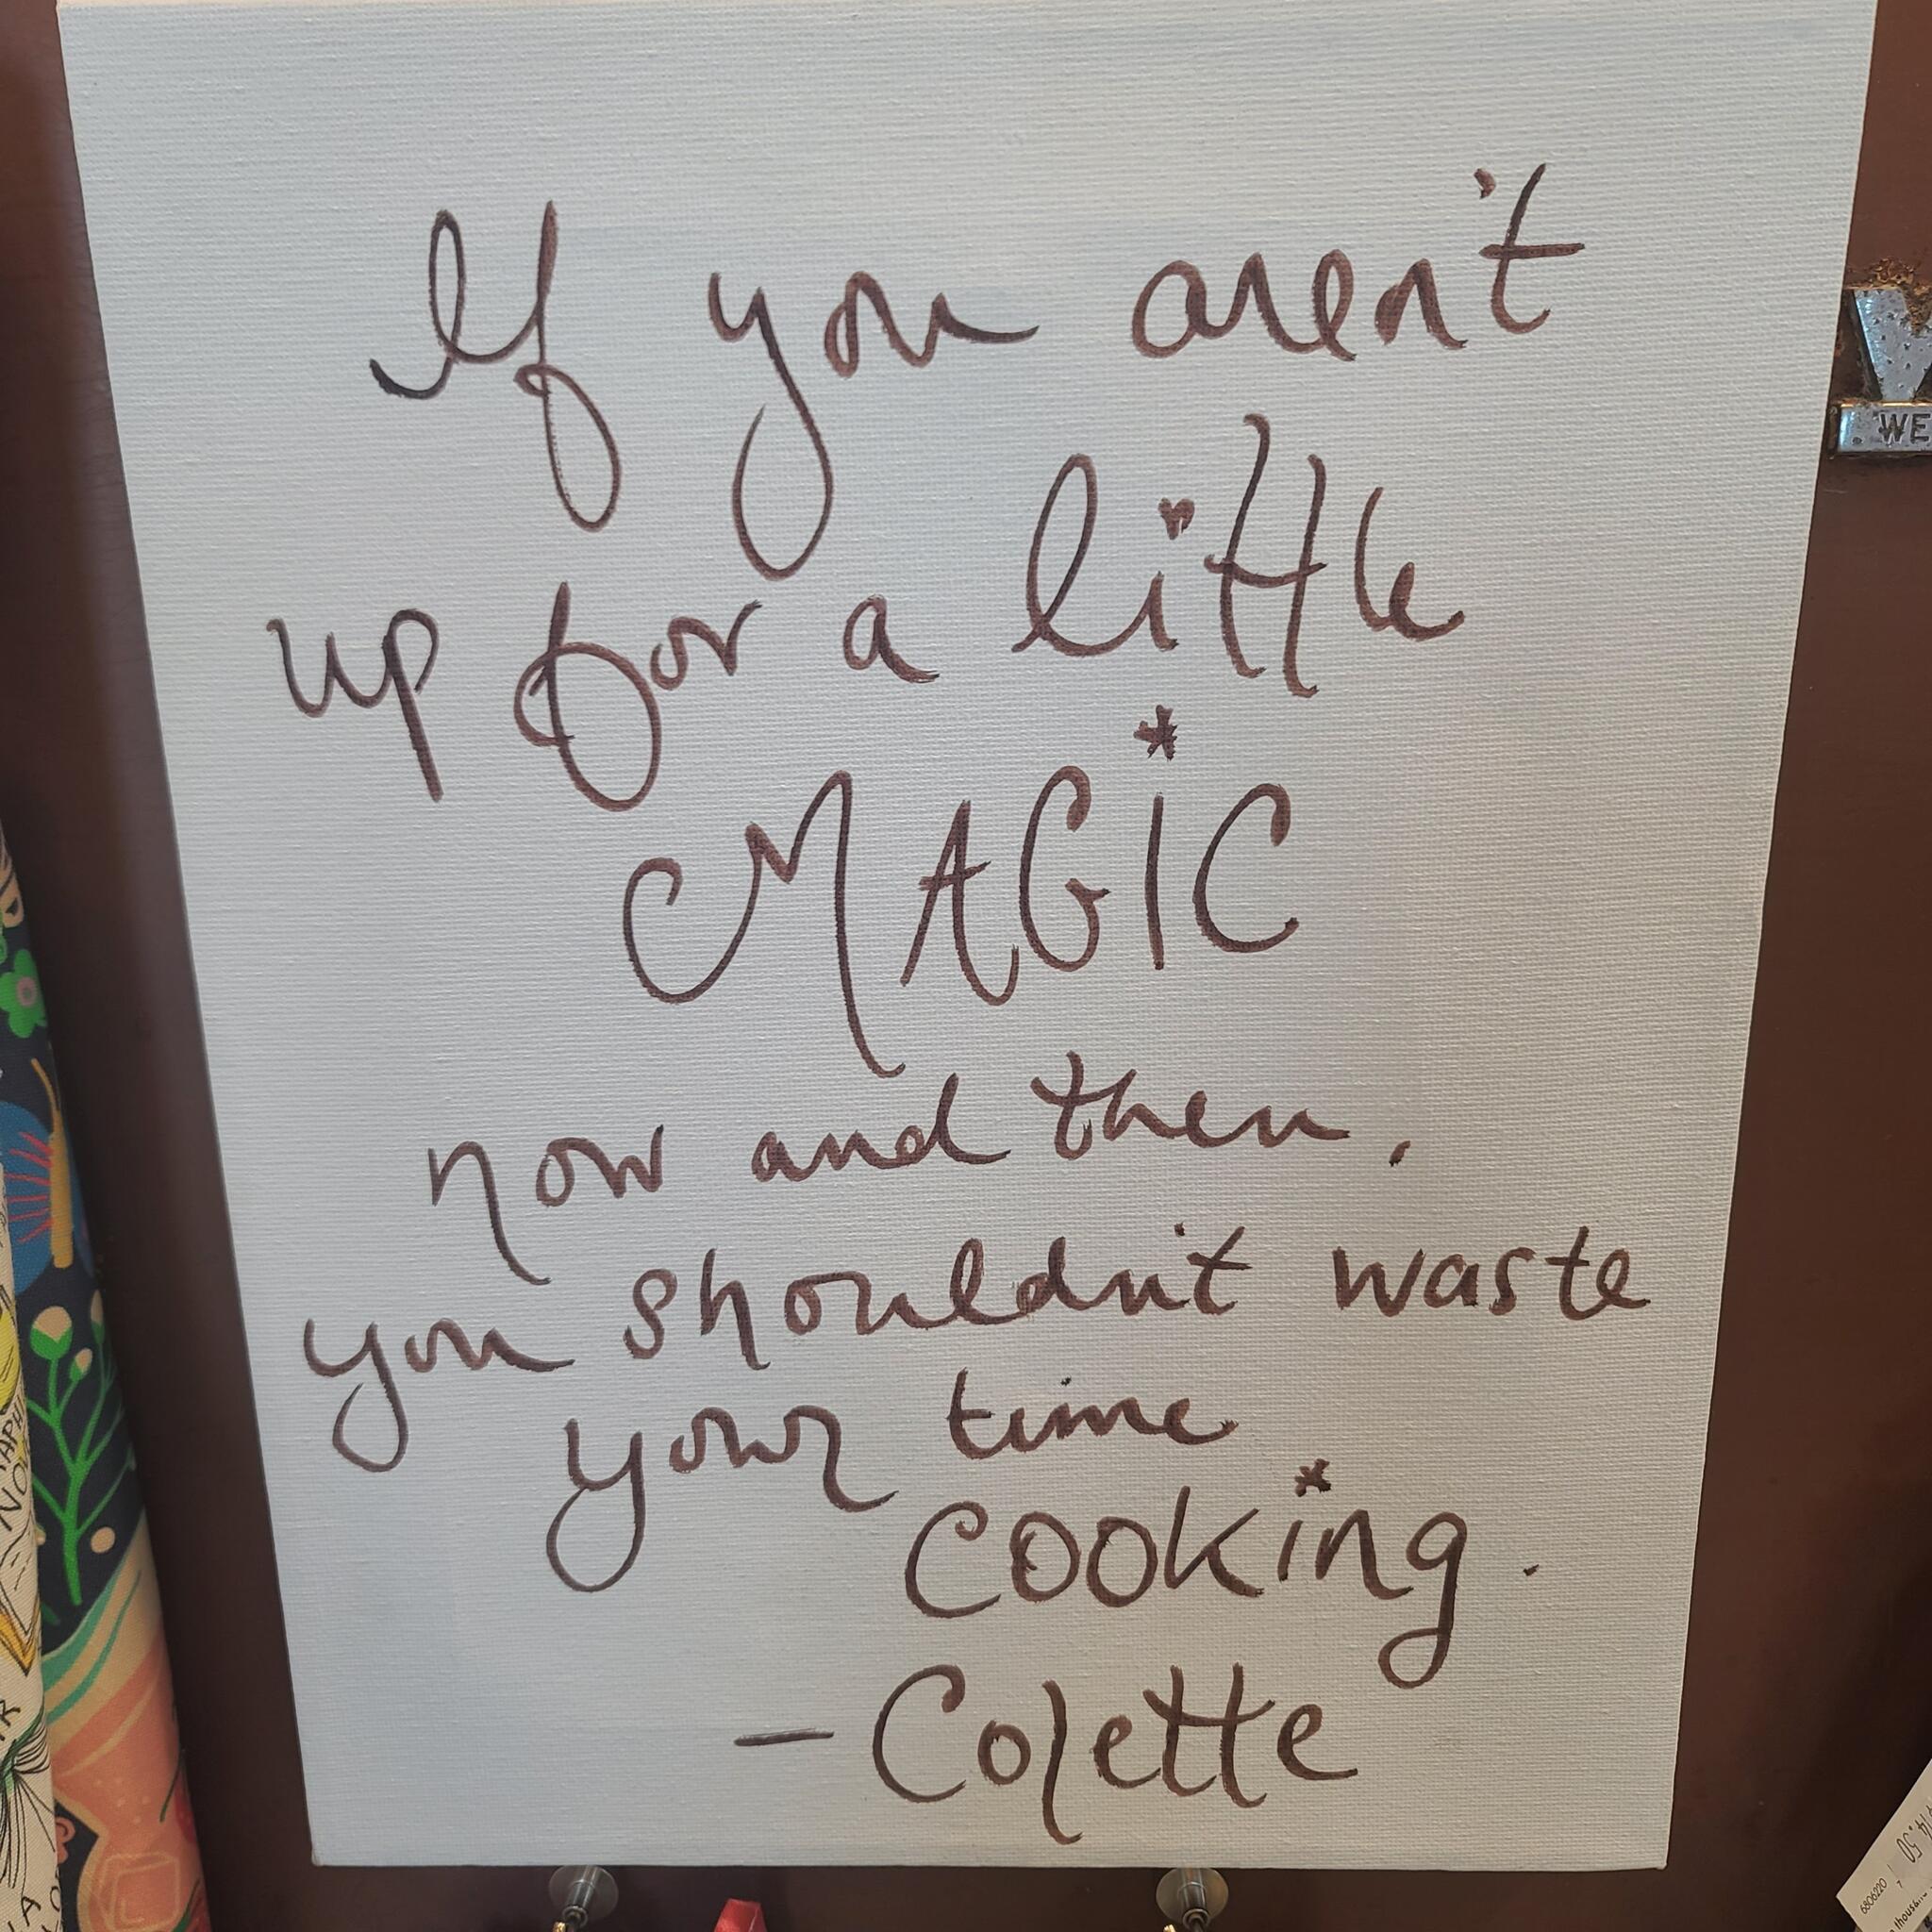 If you aren't
up for a little
MAGiC
now and then,
you shouldn't waste
your time
cooking.
— Colette
WE
NO
14.50
6806220